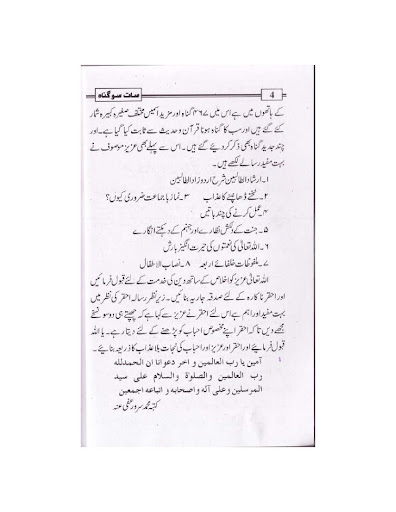 4 سات سو گناہ
کے ہاتھوں میں ہے اس میں ۴۶۷ گناہ اور مزید اسمیں مختلف صغیرہ کبیرہ شمار
کئے گئے ہیں اور سب کا گناہ ہونا قرآن و حدیث سے ثابت کیا گیا ہے۔ اور
چند جدید گناہ بھی ذکر کر دیئے گئے ہیں۔ اس سے پہلے بھی عزیز موصوف نے
بہت مفید رسالے لکھے ہیں۔
۱۔ ارشاد الطالبین شرح اردو زاد الطالبین
۲۔ ٹخنے ڈھانپنے کا عذاب ۳۔ نماز با جماعت ضروری کیوں؟
۴۔ عمل کرنے کی چند باتیں
۵۔ جنت کے دلکش نظارے اور جہنم کے دہکتے انگارے
۶۔ اللہ تعالیٰ کی نعمتوں کی حیرت انگیز بارش
۷۔ ملفوظات خلفائے اربعہ ۸۔ نصاب الاطفال
اللہ تعالیٰ عزیز کو اخلاص کے ساتھ دین کی خدمت کے لئے قبول فرمائیں
اور احقر ناکارہ کے لئے صدقہ جاریہ بنائیں۔ زیر نظر رسالہ احقر کی نظر میں
بہت مفید اور اہم ہے اس لئے احقر نے عزیز سے کہا ہے کہ چھپتے ہی دو سو نسخے
مجھے دیں تا کہ احقر اپنے مخصوص احباب کو پڑھنے کے لئے دیتا رہے۔ یا اللہ
قبول فرمائیے اور احقر اور عزیز اور احباب کی نجات بلا عذاب کا ذریعہ بنائیے۔
آمین یا رب العالمین و اخر دعوانا ان الحمدلله
رب العالمین والصلوة والسلام علی سید
المرسلین وعلی آله واصحابه و اتباعه اجمعین
کتبہ محمد سرور عفی عنہ